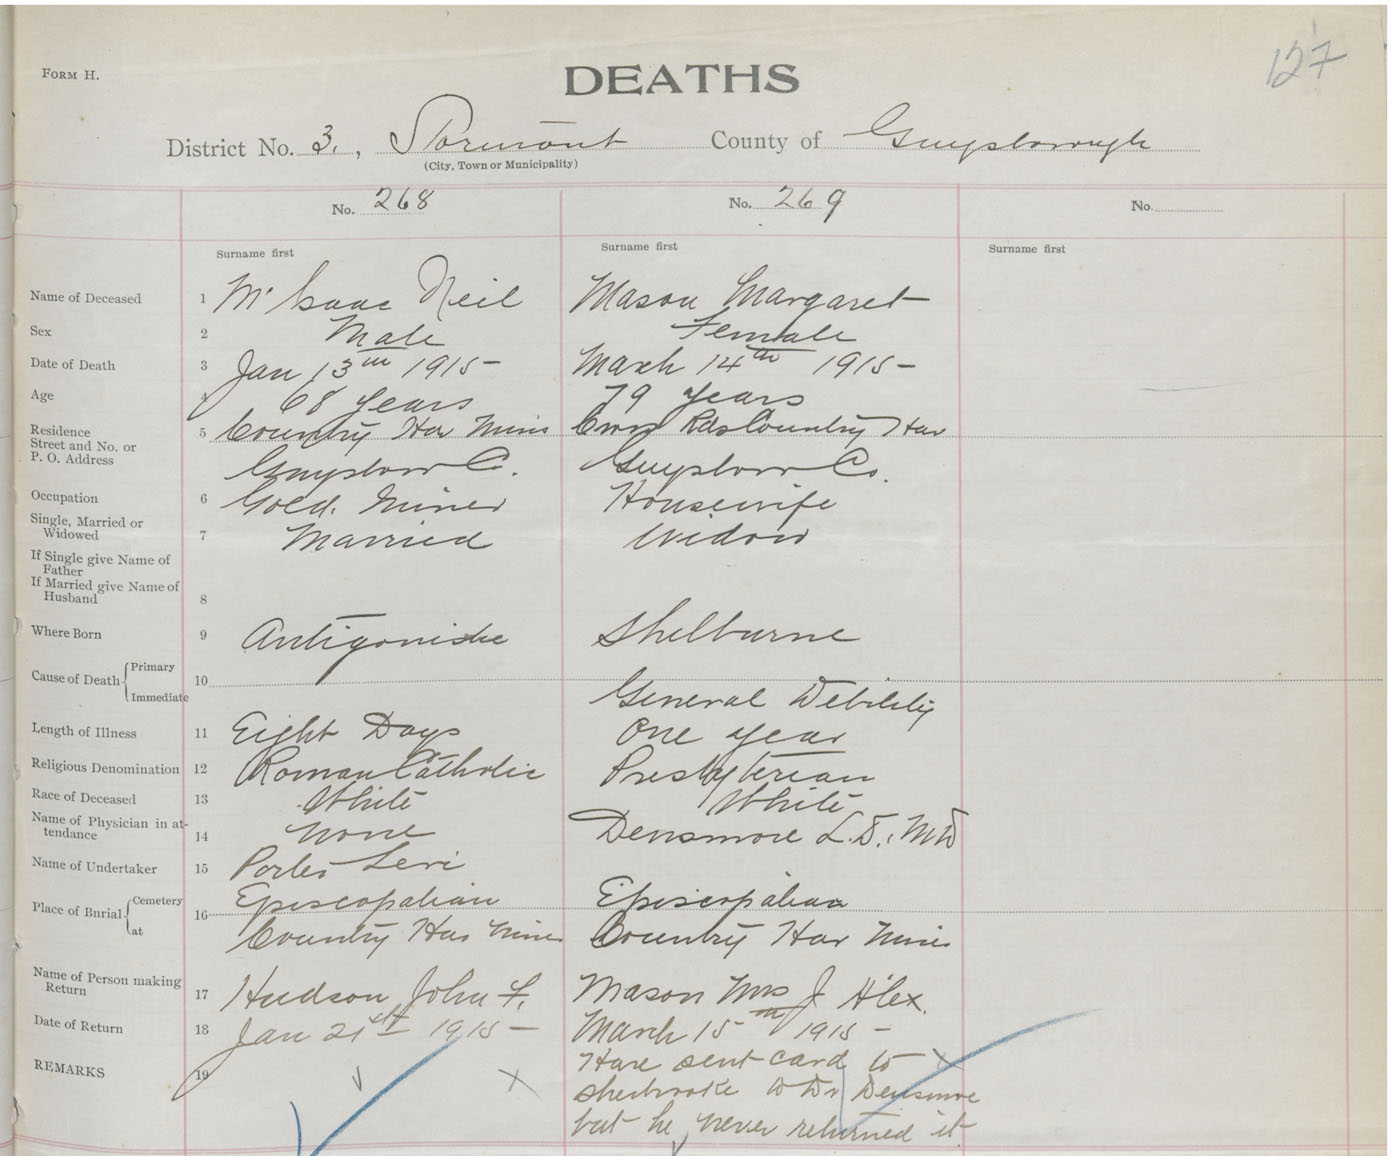 127
FORM H.
DEATHS
District No. 3., Stormont County of Guysborough
(City, Town or Municipality)
No. 268 No. 269 No.
Surname first Surname first Surname first
Name of Deceased 1 Mc Isaac Neil Mason Margaret
Sex 2 Male Female
Date of Death 3 Jan 13th 1915- March 14th 1915-
Age 4 68 years 79 years
Residence
Street and No. or
P. O. Address
5 Country Har Mines Cross Rds Country Har
Guysboro Co. Guysboro Co.
Occupation 6 Gold. Miner Housewife
Single, Married or
Widowed 7 Married Widow
If Single give Name of
Father
If Married give Name of
Husband 8
Where Born 9 Antigonishe Shelburne
Cause of Death Primary 10
Immediate General Debility
Length of Illness 11 Eight Days One year
Religious Denomination 12 Roman Catholic Presbyterian
Race of Deceased 13 White White
Name of Physician in at-
tendance 14 None Densmore L.D., MD
Name of Undertaker 15 Porter Levi
Place of Burial Cemetery 16 Episcopalian Episcopalian
at Country Har Mines Country Har Mines
Name of Person making
Return 17 Hudson John F. Mason Mrs J Alex.
Date of Return 18 Jan 21st 1915- March 15th 1915-
REMARKS 19 Have sent card to
Sherbroke to Dr Densmore
but he never returned it